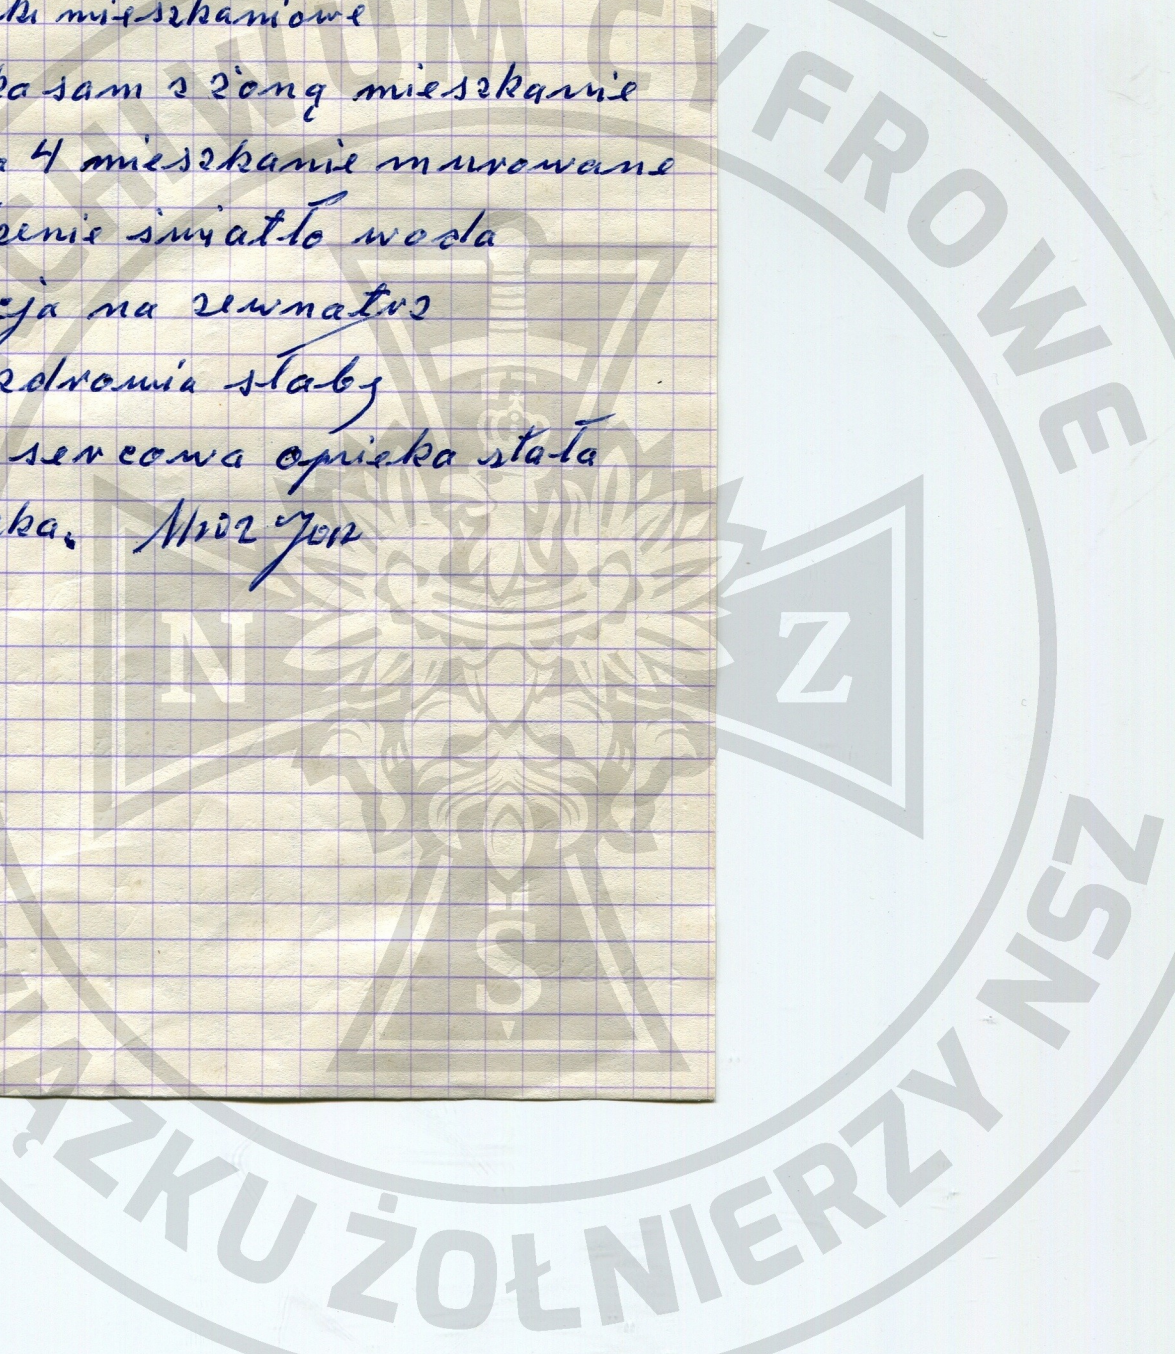 ki mieszkaniowe
ka sam z żoną mieszkanie
a 4 mieszkanie murowane
zenie światło woda
cja na zewnatrz
zdrowia słaby
sercowa opieka stała
ka. Mróz Jan
N Z
S
ARCHIWUM CYFROWE
ZWIĄZKU ŻOŁNIERZY NSZ